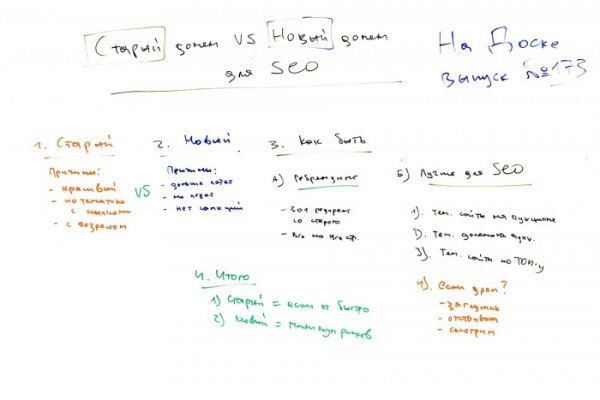 Старый домен VS Новый домен
для SEO
На Доске
выпуск №173
1. Старый
Причины:
- красивый
- по тематике
с ссылками
- с возрастом
VS
2. Новый
Причины:
- дольше
- нет санкций
3. Как быть
А) Ребрендинг
- 301 редирект
со старого
- Все на все стр.
Б) Лучше для SEO
1). Тем. сайты на аукционе
2). Тем. домены
3). Тем. сайты по ТОП-у
4). Если дроп?
- загрузить
- отстоять
- смотрим
4. Итого
1) Старый = если оч быстро
2) Новый = минимум рисков